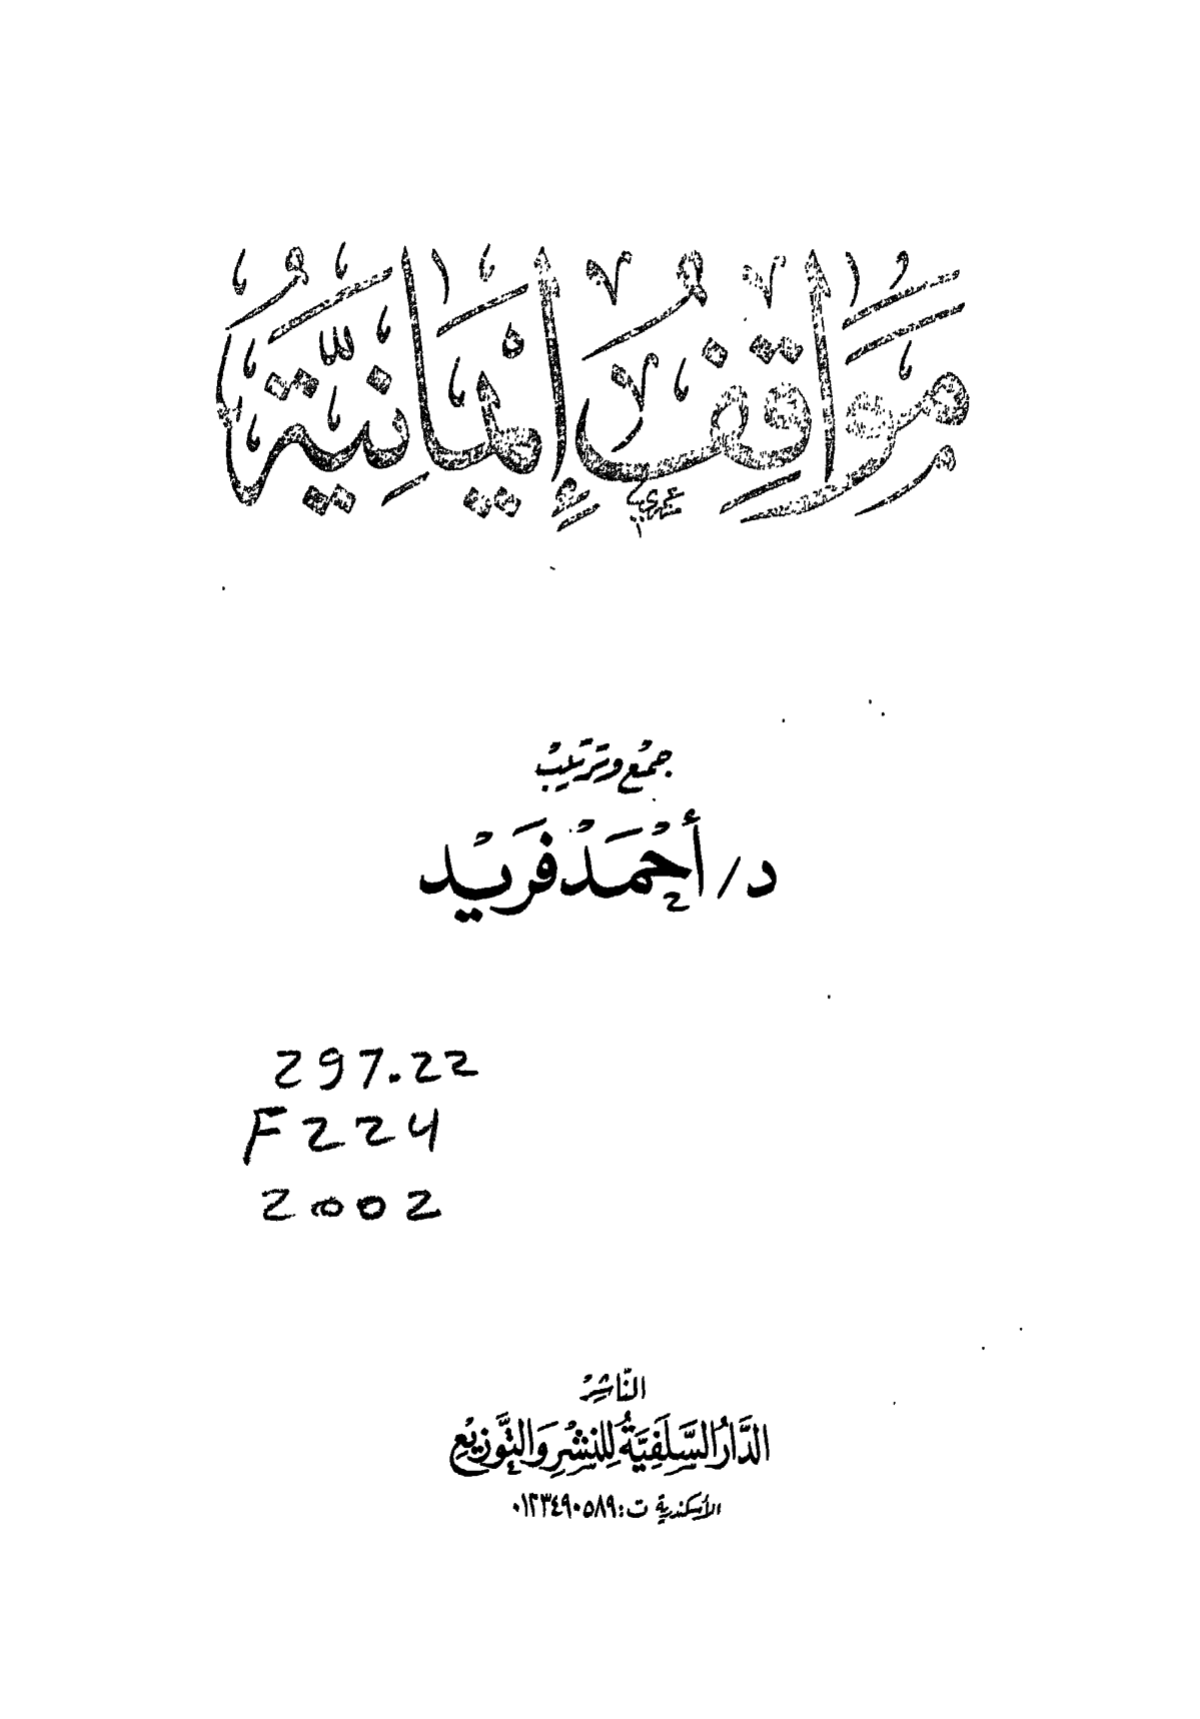 مَوَاقِفُ إِيمَانِيَّةُ
جمْع وتَرتيبْ
د/ أحْمَدْ فَريْد
297.22
F224
2002
النَّاشِرُ
الدَّارُ السَّلَفِيَّةُ لِلنشْرِ وَالتَّوْزِيْعِ
الأسكندرية ت: ٠١٢٣٤٩٠٥٨٩